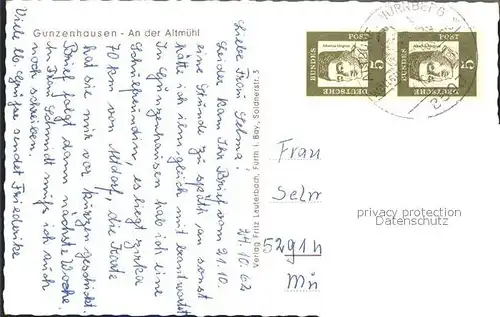 Gunzenhausen - An der Altmühl
24.10.62
Liebe Frau Selma!
Leider kam Ihr Brief vom 21.10.
eine Stunde zu spät an sonst
hätte ich ihn gleich mit beantwortet
In Gunzenhausen hab ich eine
Schulfreundin, es liegt zirka
70 km von Altdorf, die Karte
hat sie mir vor kurzem geschickt.
Brief folgt dann nächste Woche.
An Frau Schmidt muß ich auch
noch schreiben.
Viele lb. Grüße sendet Friederike
Verlag Fritz Lauterbach, Fürth i. Bay., Soldnerstr. 3
DEUTSCHE
BUNDES
POST
5
DEUTSCHE
BUNDES
POST
5
NÜRNBERG
Frau
Selm
privacy protection
Datenschutz
5291
Mü